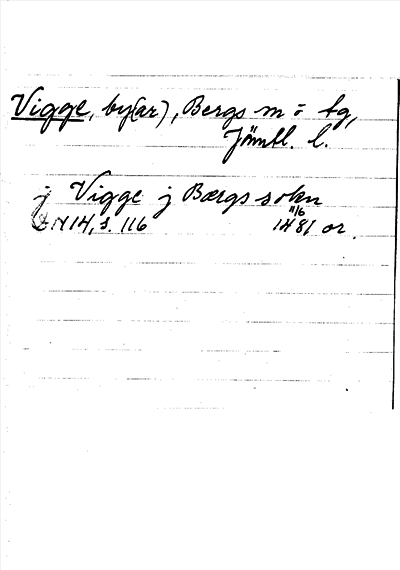 Vigge, by(ar), Bergs m o tg,
Jämtl. l.
j Vigge j Bærgs sokn
DN 14, s. 116 11/6 1481 or.